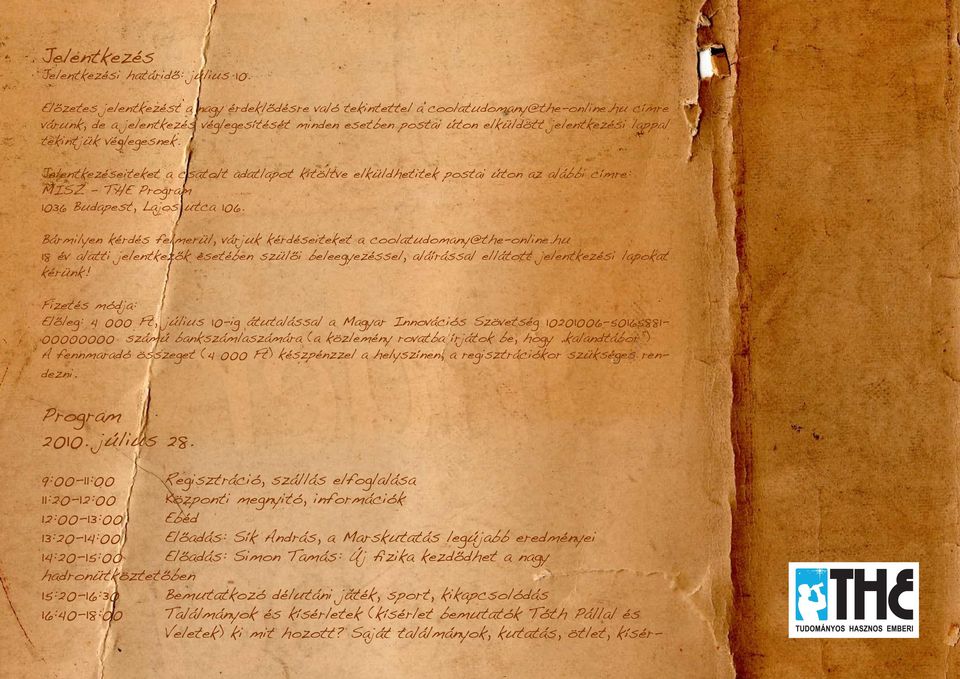 Jelentkezés
Jelentkezési határidő: július 10.
Előzetes jelentkezést a nagy érdeklődésre való tekintettel a coolatudomany@the-online.hu címre
várunk, de a jelentkezés véglegesítését minden esetben postai úton elküldött jelentkezési lappal
tekintjük véglegesnek.
Jelentkezéseiteket a csatolt adatlapot kitöltve elküldhetitek postai úton az alábbi címre:
MISZ - THE Program
1036 Budapest, Lajos utca 106.
Bármilyen kérdés felmerül, várjuk kérdéseiteket a coolatudomany@the-online.hu
18 év alatti jelentkezők esetében szülői beleegyezéssel, aláírással ellátott jelentkezési lapokat
kérünk!
Fizetés módja:
Előleg: 4 000 Ft, július 10-ig átutalással a Magyar Innovációs Szövetség 10201006-50165881-
00000000 számú bankszámlaszámára (a közlemény rovatba írjátok be, hogy „kalandtábor")
A fennmaradó összeget (4 000 Ft) készpénzzel a helyszínen, a regisztrációkor szükséges ren-
dezni.
Program
2010. július 28.
9:00-11:00 Regisztráció, szállás elfoglalása
11:20-12:00 Központi megnyitó, információk
12:00-13:00 Ebéd
13:20-14:00 Előadás: Sik András, a Marskutatás legújabb eredményei
14:20-15:00 Előadás: Simon Tamás: Új fizika kezdődhet a nagy
hadronütköztetőben
15:20-16:30 Bemutatkozó délutáni játék, sport, kikapcsolódás
16:40-18:00 Találmányok és kísérletek (kísérlet bemutatók Tóth Pállal és
Veletek) ki mit hozott? Saját találmányok, kutatás, ötlet, kísér-
THE
TUDOMÁNYOS HASZNOS EMBERI